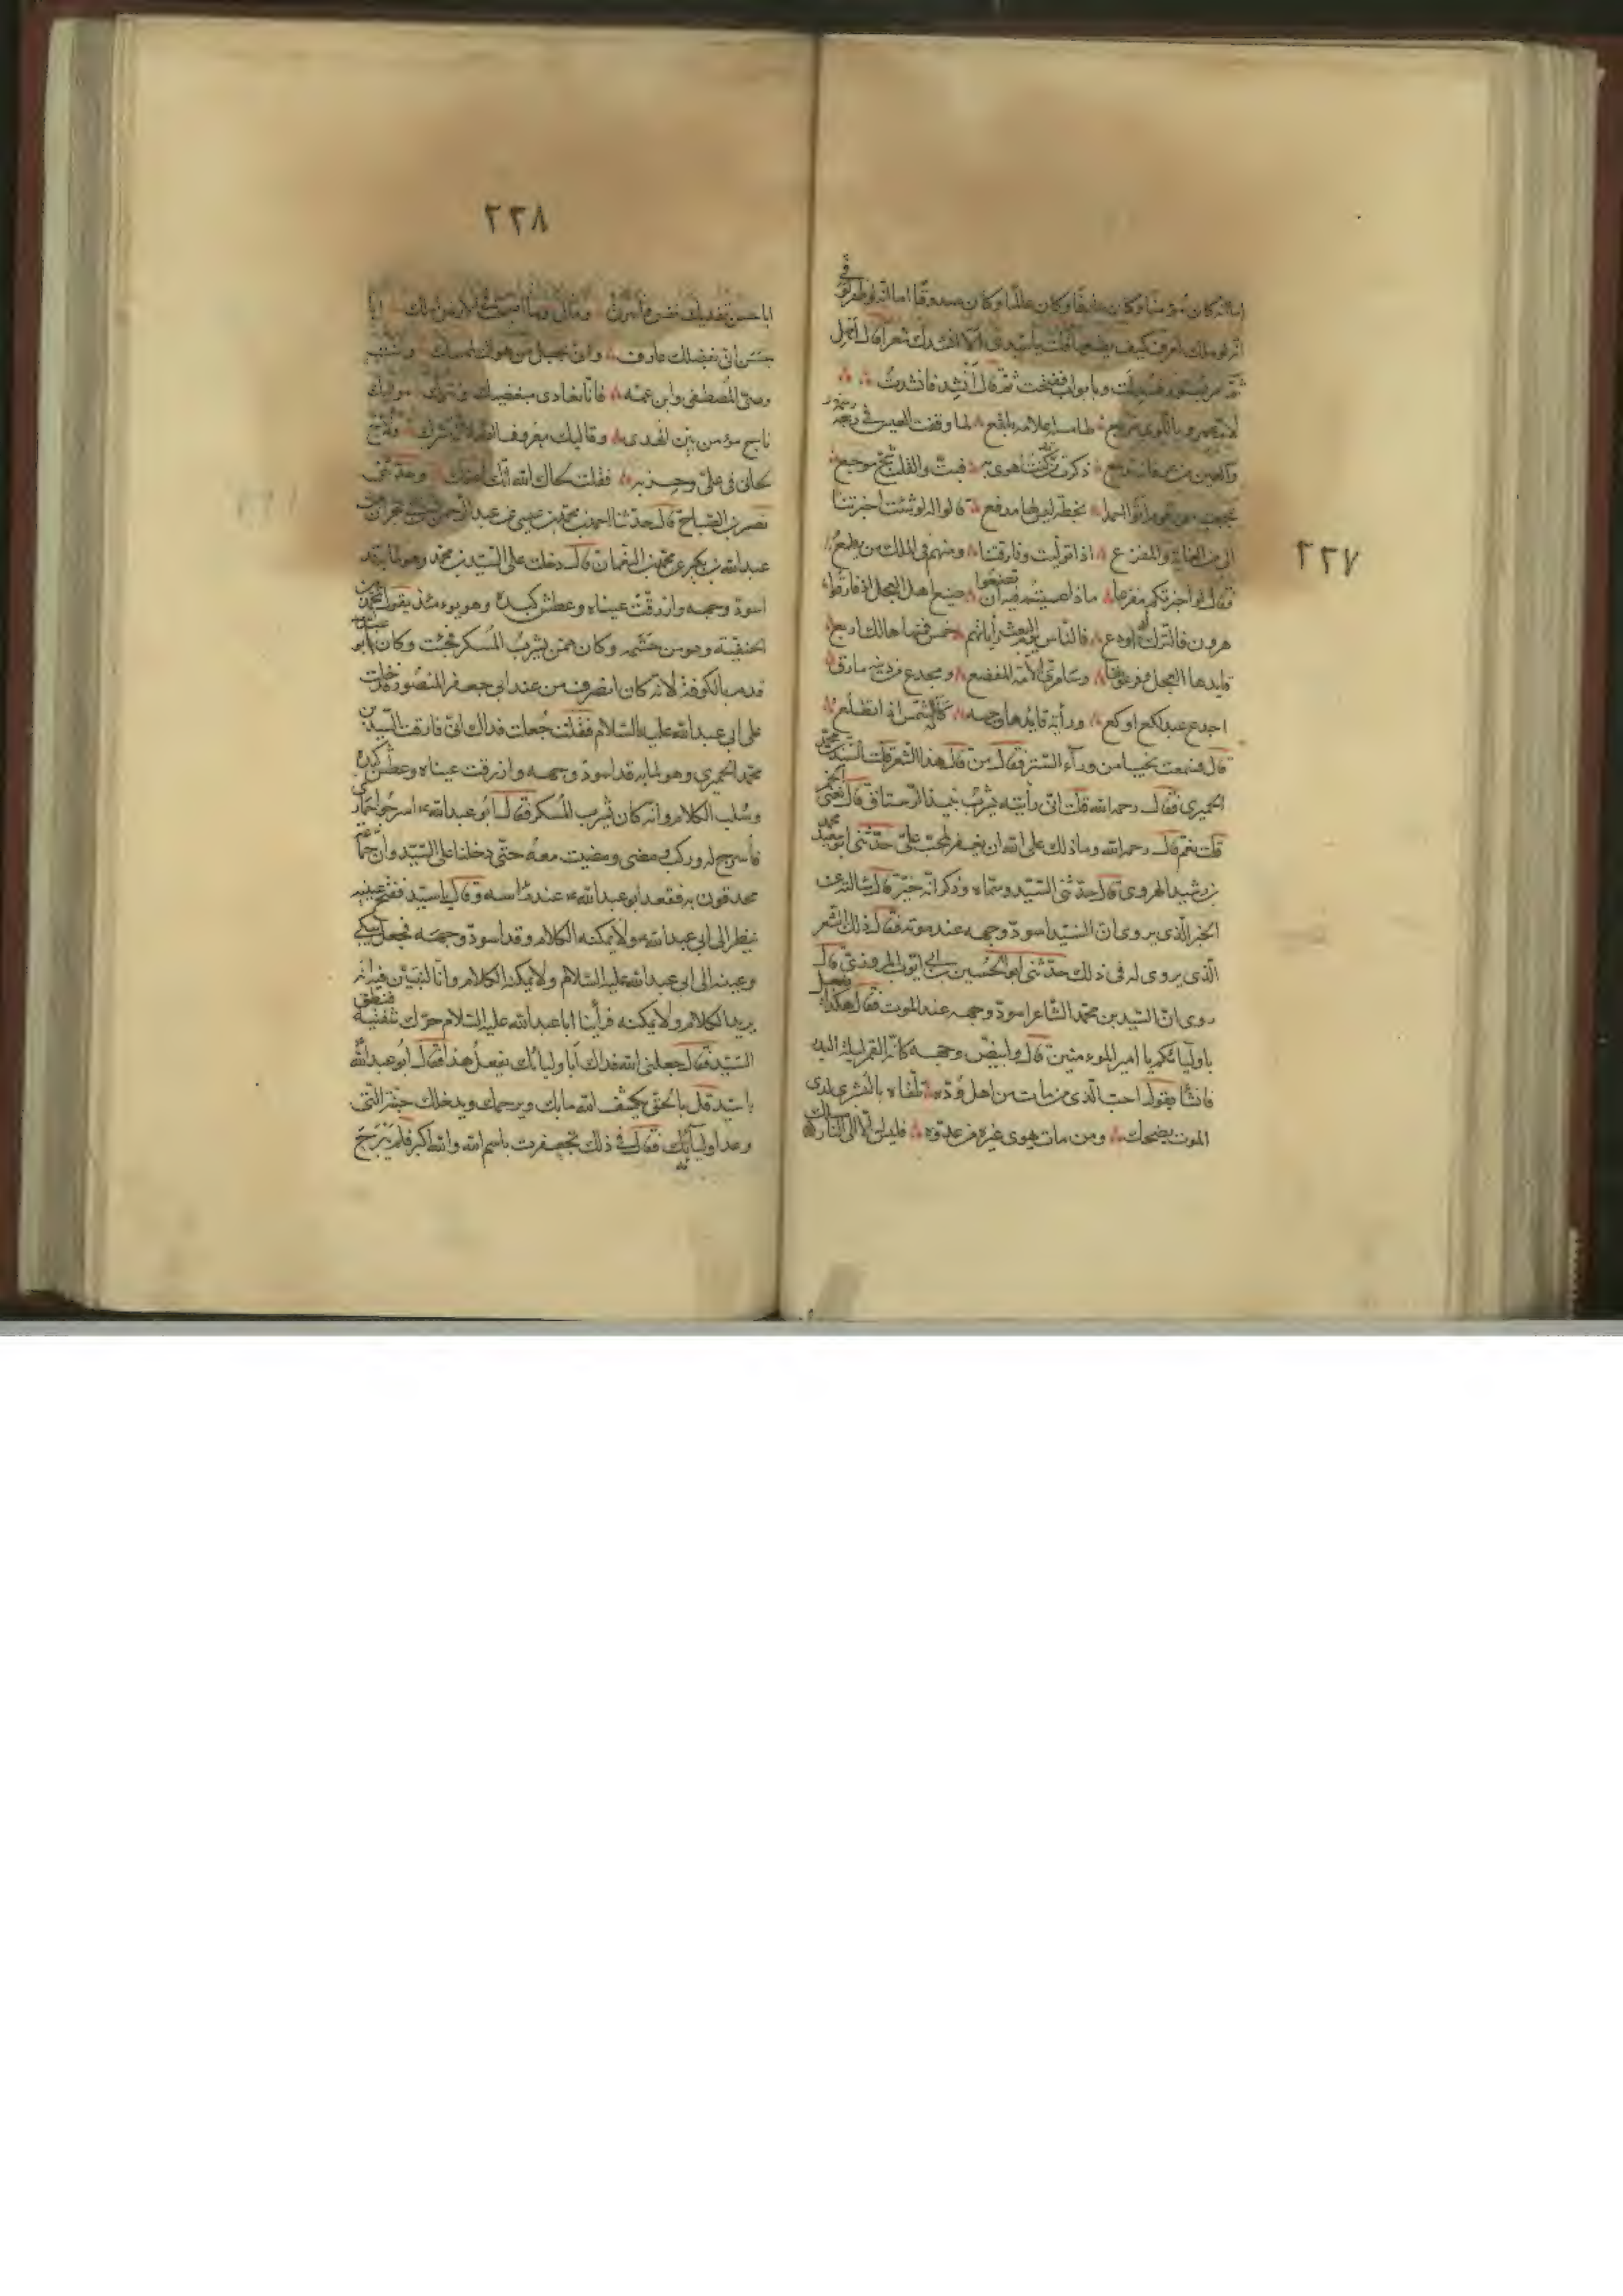 انه كان مؤمنا وكان عارفا وكان عالما وكان صدوقا اما انه لو ظفر لوفى
اما انه لو ملك لعرف كيف يضعها قلت يا سيدى الا انشدك شعرا قال امهل
ثم امر بستور فسدلت وبابواب ففتحت ثم قال أنشد فانشدت
لام عمرو باللوى مربع طامسة اعلامه بلقع لما وقفت العيس فى رسمه
والعين من عرفانه تدمع ذكرت من كنت اهوى به فبت والقلب شج موجع
عجبت من قوم اتوا احمدا بخطة ليس لها مدفع قالوا له لو شئت اخبرتنا
الى من الغاية والمفزع اذا توليت وفارقتنا ومنهم فى الملك من يطمع
فقال لو اخبرتكم مفزعا ماذا عسيتم فيه ان تصنعوا صنيع اهل العجل اذ فارقوا
هرون فالترك له اودع فالناس يوم البعث راياتهم خمس فمنها هالك اربع
قايدها العجل وفرعونها وسامرى الأمة المفضع ومجدع من دينه مارق
اجدع عبد لكع اوكع وراية قايدها وجهه كانه الشمس اذا تطلع
قال فسمعت نحيبا من ورآء الستر فقال من قال هذا الشعر قلت السيد بن محمد
الحميرى فقال رحمه الله قلت انى رأيته يشرب نبيذ الرستاق قال تعنى الخمر
قلت نعم قال رحمه الله وما ذلك على الله ان يغفر لمحب على حدثنى ابو سعيد محمد
بن رشيد الهروى قال حدثنى السيد وسماه وذكر انه خير قال سالته عن
الخبر الذى يروى ان السيد اسود وجهه عند موته فقال ذلك الشعر
الذى يروى له فى ذلك حدثنى ابو الحسين بن ابى ايوب المروزى قال
روى ان السيد بن محمد الشاعر اسود وجهه عند الموت فقال هكذا يفعل
باوليائكم يا امير المؤمنين قال وابيض وجهه كانه القمر ليلة البدر
فانشأ يقول احب الذى من مات من اهل وده تلقاه بالبشرى لدى
الموت يضحك ومن مات يهوى غيره من عدوه فليس له الا الى النار مسلك
٢٢٧
٢٢٨
ابا حسن تفديك نفسى واسرتى ومالى وما اصبحت فى الارض املك ابا
حسن انى بفضلك عارف وانى بحبل من هواك لممسك وانت
وصى المصطفى وابن عمه فانا نعادى مبغضيك ونترك مواليك
ناج مؤمن بين الهدى وقاليك معروف الضلالة مشرك ولاح
لحانى فى على وحزبه فقلت لحاك الله انك اعفك وحدثنى
نصر بن الصباح قال حدثنا احمد بن محمد بن عيسى عن عبد الرحمن بن ابى نجران عن
عبد الله بن بكير عن محمد بن النعمان قال دخلت على السيد بن محمد وهو لما به قد
اسود وجهه وازرقت عيناه وعطش كبده وهو يومئذ يقول بمحمد بن
الحنفية وهو من حشمه وكان ممن يشرب المسكر فجئت وكان ابو عبد الله
قدم بالكوفة لانه كان انصرف من عند ابى جعفر المنصور فدخلت
على ابى عبد الله عليه السلام فقلت جعلت فداك انى فارقت السيد بن
محمد الحميرى وهو لما به قد اسود وجهه وازرقت عيناه وعطش كبده
وسلب الكلام وانه كان يشرب المسكر فقال ابو عبد الله اسرجوا حمارى
فأسرج له وركب ومضى ومضيت معه حتى دخلنا على السيد وان جماعة
محدقون به فقعد ابو عبد الله عند راسه وقال يا سيد ففتح عينيه
ينظر الى ابى عبد الله ولا يمكنه الكلام وقد اسود وجهه فجعل يبكى
وعينه الى ابى عبد الله عليه السلام ولا يمكنه الكلام وانا لنتبين فيه انه
يريد الكلام ولا يمكنه فرأينا ابا عبد الله عليه السلام حرك شفتيه فنطق
السيد فقال جعلنى الله فداك أباوليائك يفعل هذا فقال ابو عبد الله
يا سيد قل بالحق يكشف الله ما بك ويرحمك ويدخلك جنته التى
وعد اوليآئه فقال فى ذلك تجعفرت باسم الله والله اكبر فلم يبرح